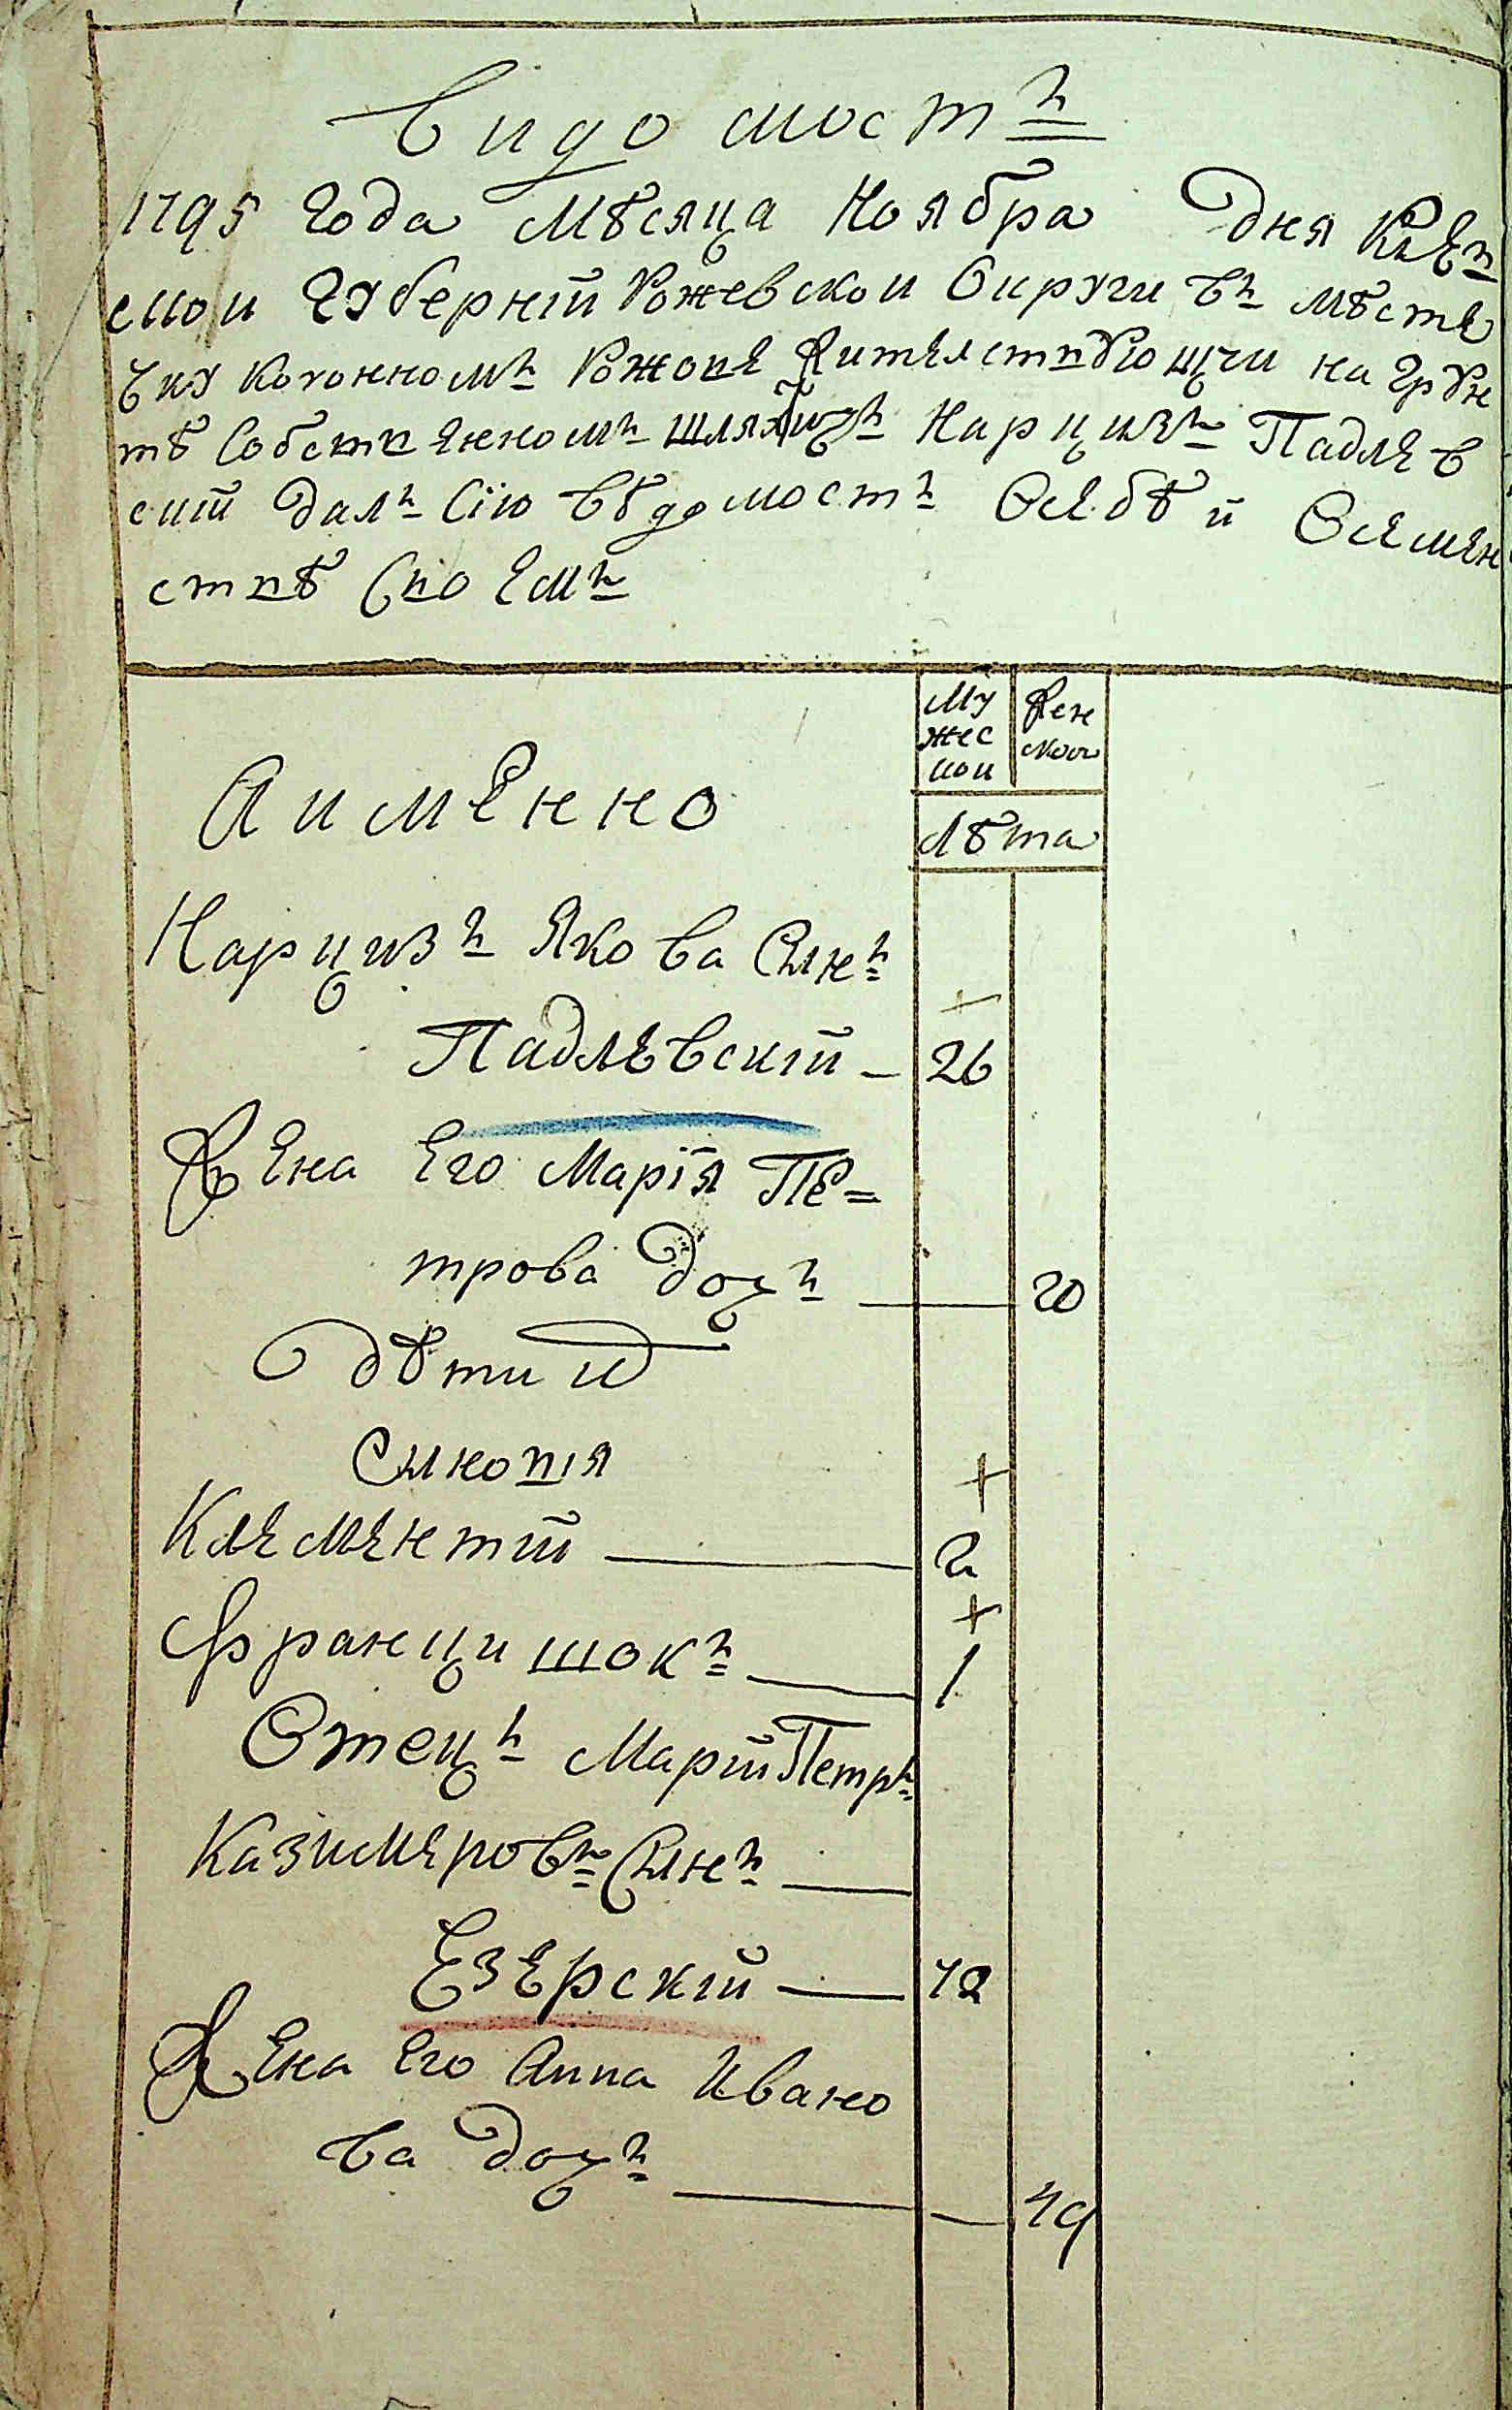 Видомостъ
1795 Года Мѣсяца Ноября Дня Киев
ской Губерніи Рожевской Округи въ мѣсте
чку коронномъ Рожове Жителствующи на грун
тѣ Собственномъ шляхтичъ Нарцизъ Падлев
скій далъ Сію вѣдомостъ Осебѣ и Осемен
ствѣ своемъ
Му
жес
кои
Жен
ской
Аименно
лѣта
Нарцизъ Якова Сынъ
Падлевскій — 26
Жена Его Марія Пе=
трова дочъ — 20
Дѣти их
Сыновія
Клементій — 2
Францишокъ — 1
Отецъ Маріи Петръ
Казимеровъ Сынъ —
Езерскій — 72
Жена Его Анна Ивано
ва дочъ — 49